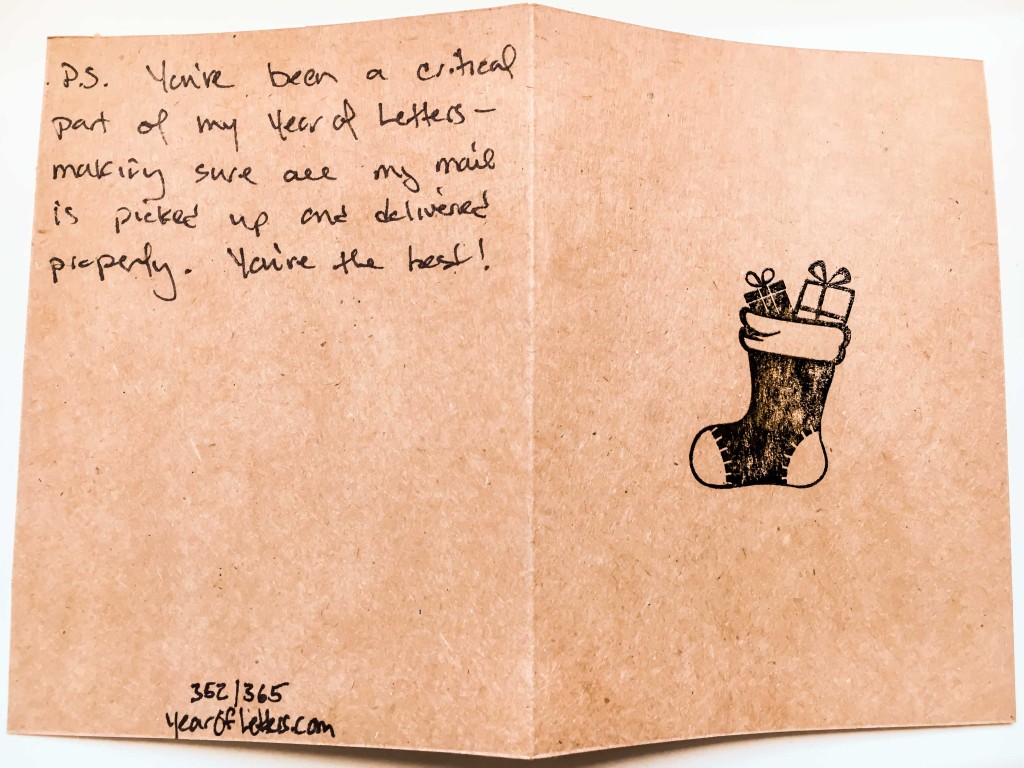 P.S. You've been a critical
part of my Year of Letters—
making sure all my mail
is picked up and delivered
properly. You're the best!
352/365
yearofletters.com